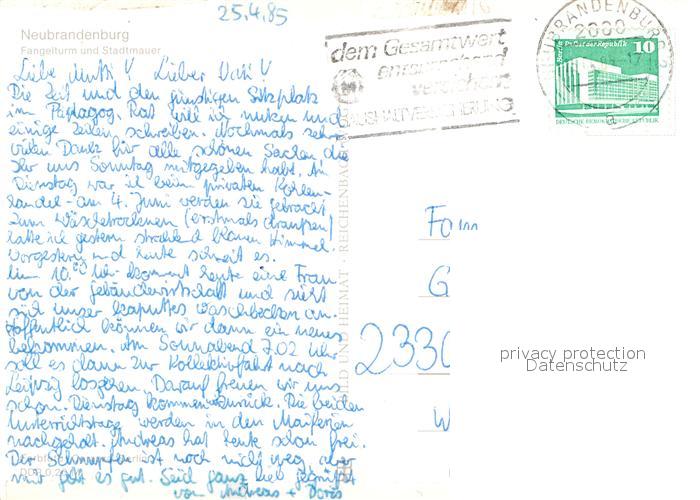 25.4.85
Neubrandenburg
Fangelturm und Stadtmauer
Liebe Mutti! Lieber Vati!
Die Zeit und den günstigen Sitzplatz
im Pädagog. Rat will ich nutzen und
einige Zeilen schreiben. Nochmals sehr
vielen Dank für alle schönen Sachen, die
Ihr uns Sonntag mitgegeben habt. Am
Dienstag war ich beim privaten Kohlen-
handel - am 4. Juni werden sie gebracht.
Zum Wäschetrocknen (erstmals draußen)
hatte ich gestern strahlend blauen Himmel.
Vorgestern und heute schneit es.
Um 10.00 Uhr kommt heute eine Frau
von der Gebäudewirtschaft und sieht
sich unser kaputtes Waschbecken an.
Hoffentlich können wir dann ein neues
bekommen. Am Sonnabend 7.02 Uhr
soll es dann zur Kollektivfahrt nach
Leipzig losgehen. Darauf freuen wir uns
schon. Dienstag kommen zurück. Die beiden
Unterrichtstage werden in den Maiferien
nachgeholt. Andreas hat heute schon frei.
Der Schnupfen ist noch nicht weg, aber
mir geht es gut. Seid ganz lieb gegrüßt
von Andreas + Doris
BILD UND HEIMAT · REICHENBACH
dem Gesamtwert
entsprechend
versichert
HAUSHALTVERSICHERUNG
NEUBRANDENBURG 2
2000
a
Berlin, Palast der Republik 10
DEUTSCHE DEMOKRATISCHE REPUBLIK
Fam
G
2330
W
privacy protection
Datenschutz